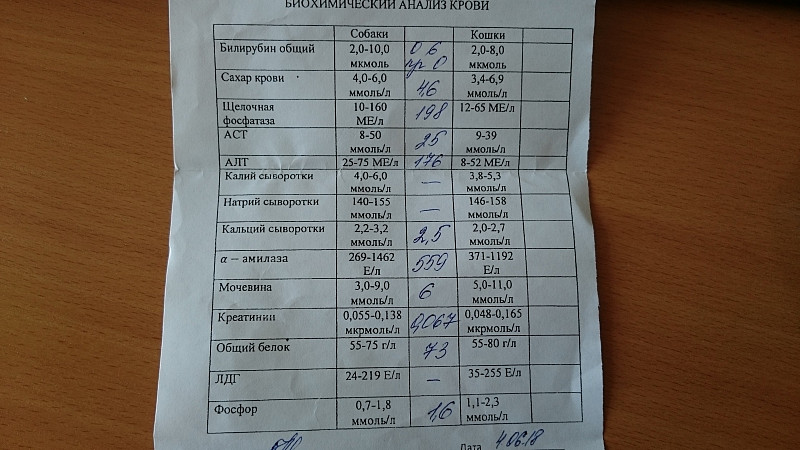 БИОХИМИЧЕСКИЙ АНАЛИЗ КРОВИ
Собаки Кошки
Билирубин общий 2,0-10,0 мкмоль 0 6 пр 0 2,0-8,0 мкмоль
Сахар крови 4,0-6,0 ммоль/л 4,6 3,4-6,9 ммоль/л
Щелочная фосфатаза 10-160 МЕ/л 198 12-65 МЕ/л
АСТ 8-50 ммоль/л 25 9-39 ммоль/л
АЛТ 25-75 МЕ/л 176 8-52 МЕ/л
Калий сыворотки 4,0-6,0 ммоль/л — 3,8-5,3 ммоль/л
Натрий сыворотки 140-155 ммоль/л — 146-158 ммоль/л
Кальций сыворотки 2,2-3,2 ммоль/л 2,5 2,0-2,7 ммоль/л
α – амилаза 269-1462 Е/л 559 371-1192 Е/л
Мочевина 3,0-9,0 ммоль/л 6 5,0-11,0 ммоль/л
Креатинин 0,055-0,138 мкрмоль/л 0,067 0,048-0,165 мкрмоль/л
Общий белок 55-75 г/л 73 55-80 г/л
ЛДГ 24-219 Е/л — 35-255 Е/л
Фосфор 0,7-1,8 ммоль/л 1,6 1,1-2,3 ммоль/л
Дата 40618